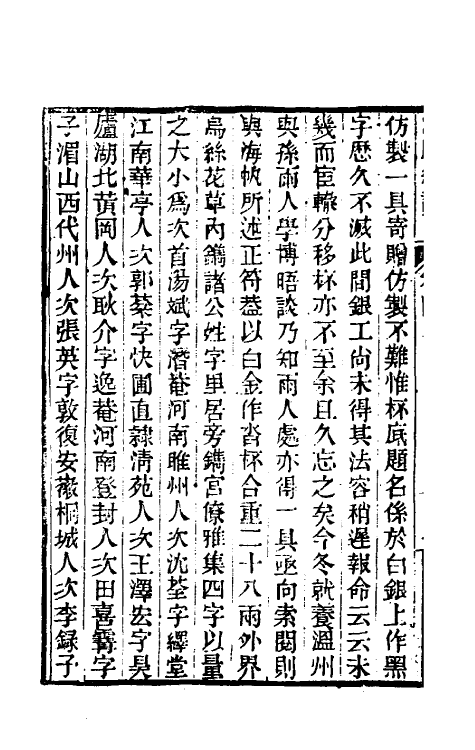 仿製一具寄贈仿製不難惟杯底題名係於白銀上作黑
字歷久不滅此間銀工尚未得其法容稍遲報命云云未
幾而宦轍分移杯亦不至余且久忘之矣今冬就養溫州
與孫雨人學博晤談乃知雨人處亦得一具亟向索閱則
與海帆所述正符葢以白金作沓杯合重二十八兩外界
烏絲花草內鐫諸公姓字里居旁鐫宮僚雅集四字以量
之大小爲次首湯斌字潛菴河南睢州人次沈荃字繹堂
江南華亭人次郭棻字快圃直隸淸苑人次王澤宏字昊
廬湖北黃岡人次耿介字逸菴河南登封人次田喜𩆍字
子湄山西代州人次張英字敦復安徽桐城人次李録子